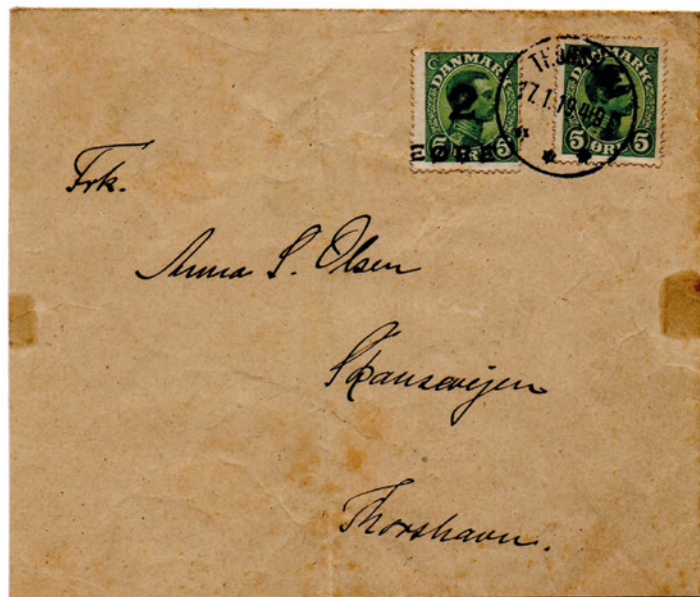 DANMARK
2
ØRE
DANMARK
5 ØRE 5
17.1.19
Frk.
Anna S. Olsen
Skansevejen
Thorshavn.